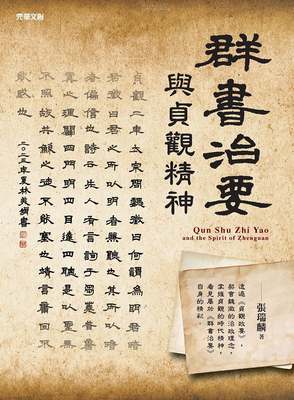 元華文創
群書治要
與貞觀精神
Qun Shu Zhi Yao
and the Spirit of Zhenguan
貞觀二年太宗問魏徵曰何謂為明君暗
君徵曰君之所以明者兼聽也其所以暗
者偏信也詩云先人有言詢于芻蕘昔唐
虞之理闢四門明四目達四聰是以聖無
不照故共鯀之徒不能塞也靖言庸回不
能惑也
張瑞麟 著
透過《貞觀政要》，
契會魏徵的治政理念，
掌握貞觀的時代精神，
看見屬於《群書治要》
自身的精彩。